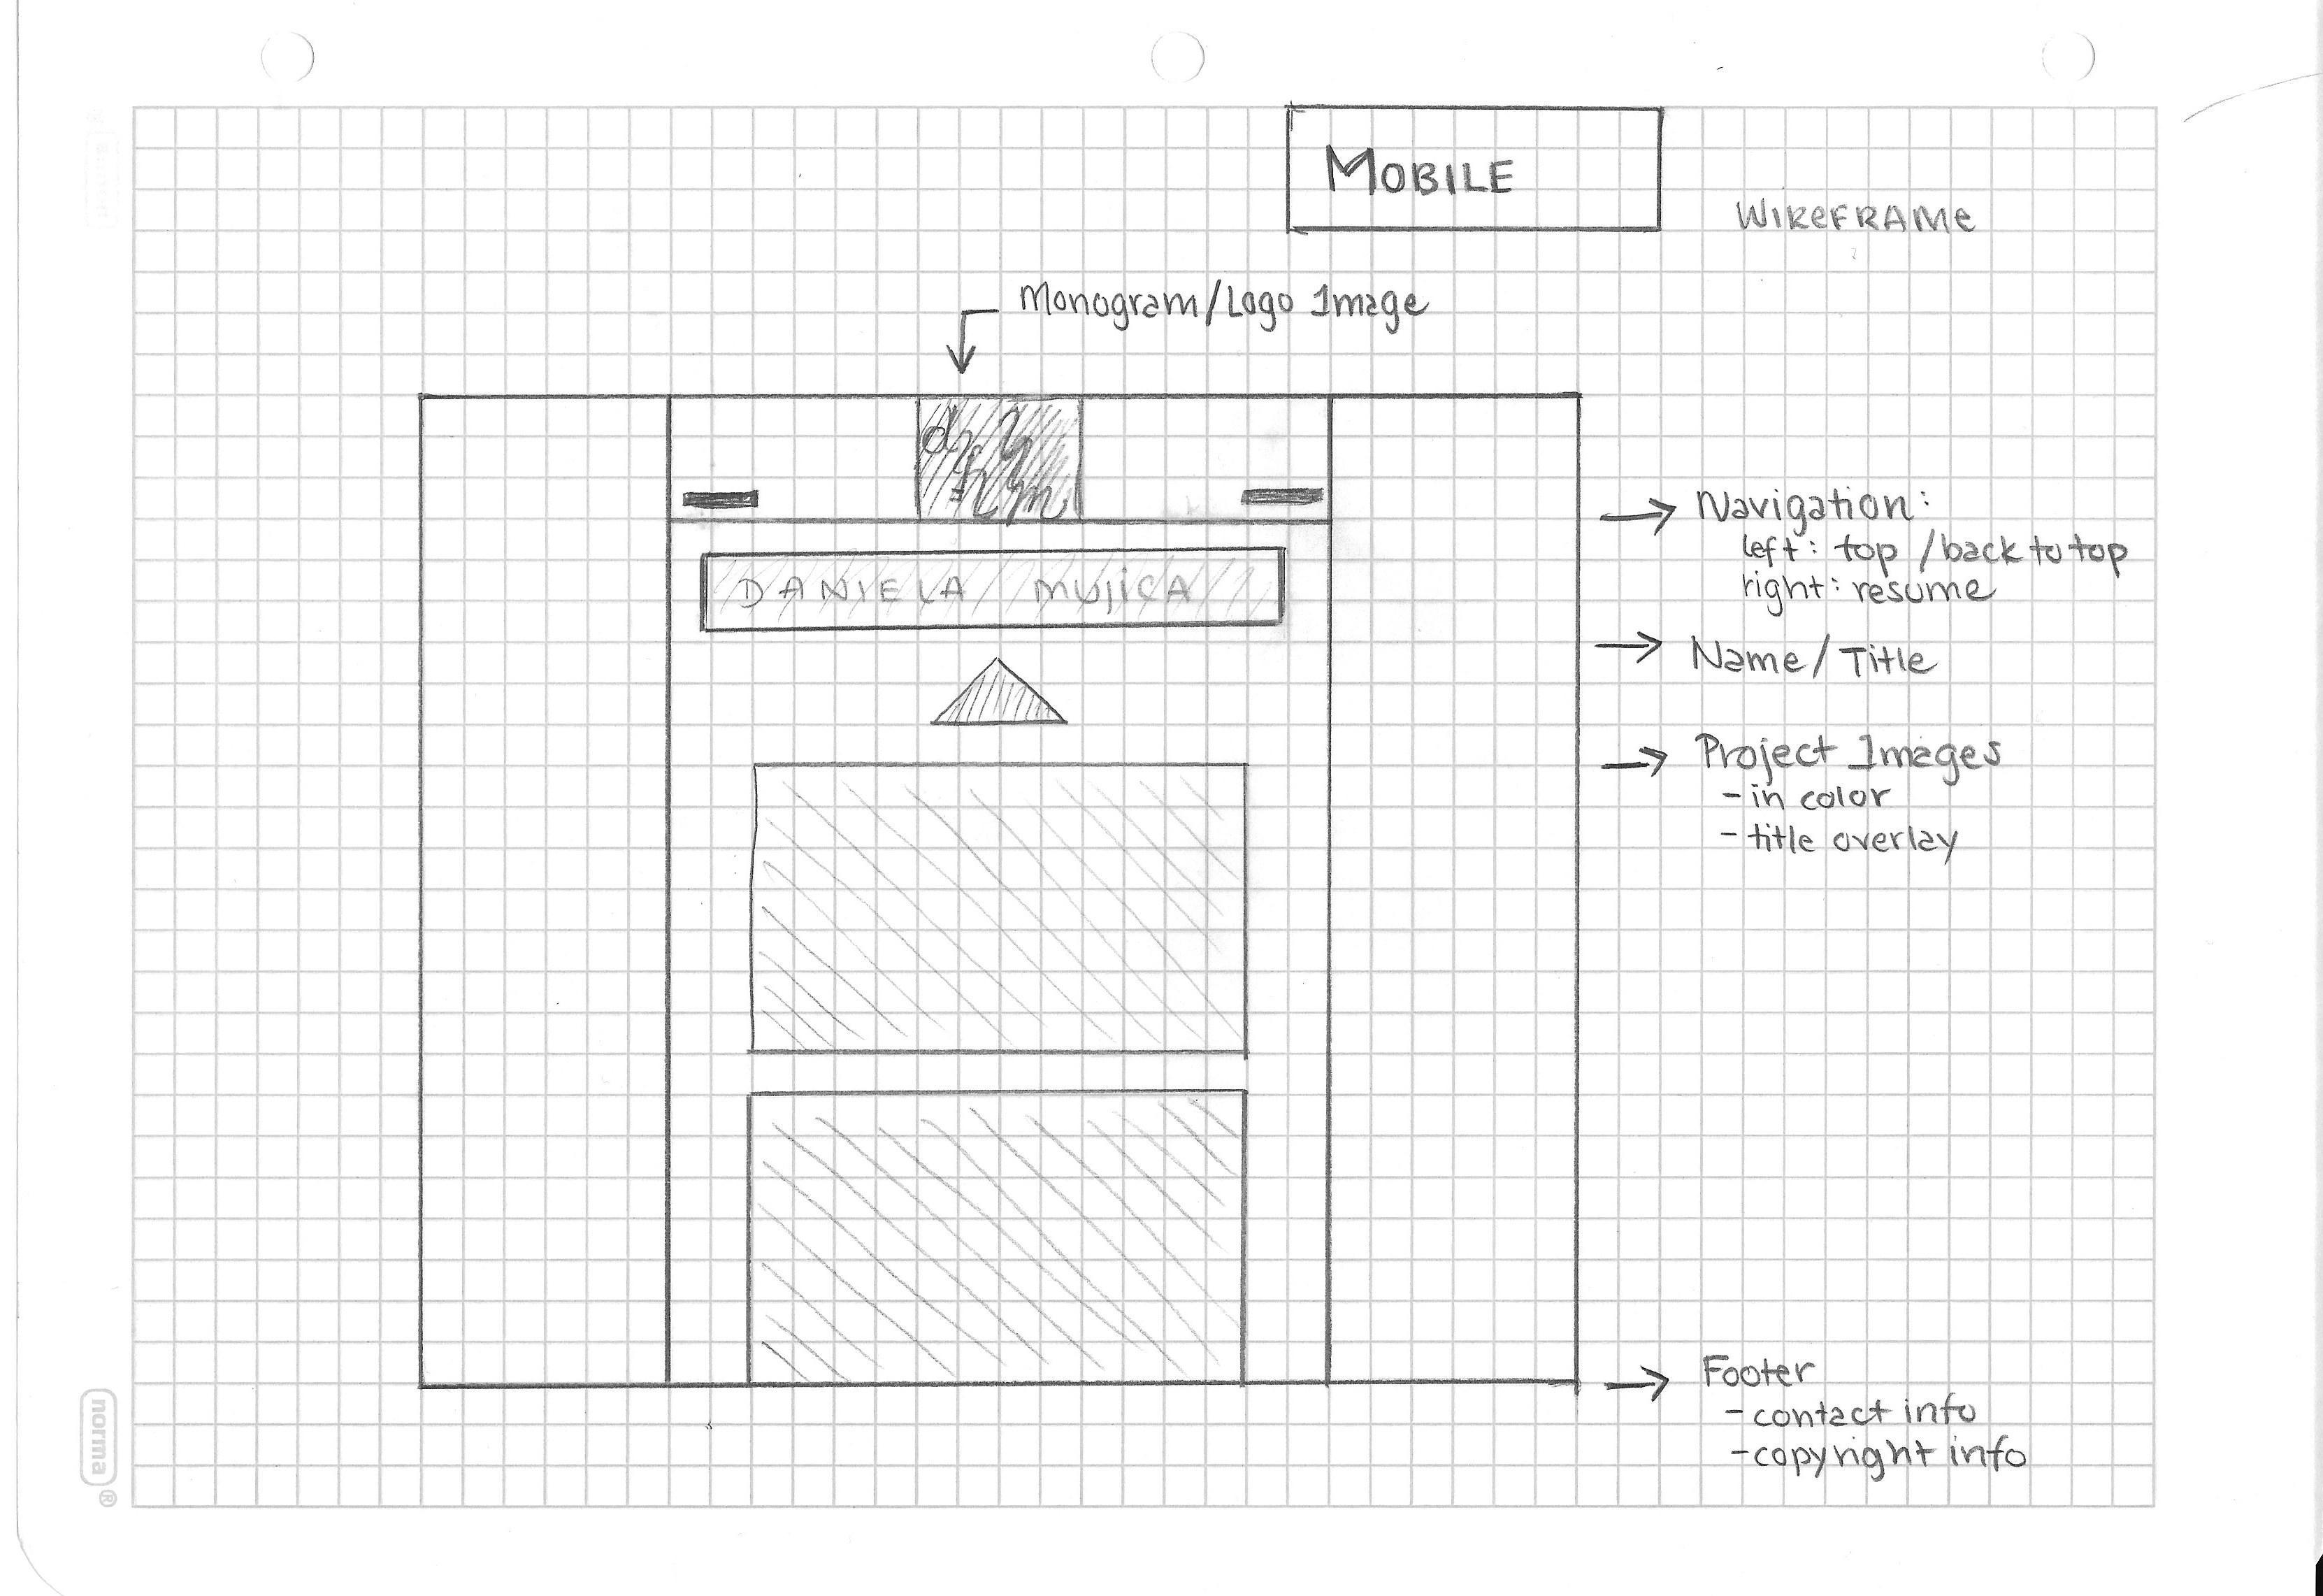 MOBILE
WIREFRAME
Monogram/Logo Image
Navigation:
left: top /back to top
right: resume
DANIELA MUJICA
Name/Title
Project Images
- in color
- title overlay
Footer
- contact info
- copyright info
norma®